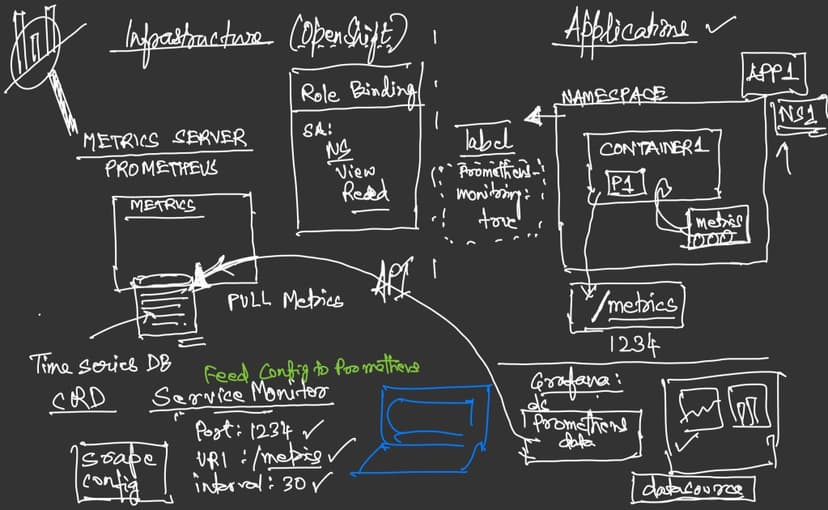 Infrastructure (OpenShift)
Applications
METRICS SERVER
PROMETHEUS
METRICS
Role Binding
SA:
NS
View
Read
label
Prometheus-
monitoring:
true
NAMESPACE
APP1
NS1
CONTAINER1
P1
metrics
/metrics
1234
PULL Metrics
API
Time series DB
CRD
Feed Config to Prometheus
Service Monitor
Port: 1234
URI : /metrics
interval: 30
scrape
config
Grafana:
dc
Prometheus
data
datasource